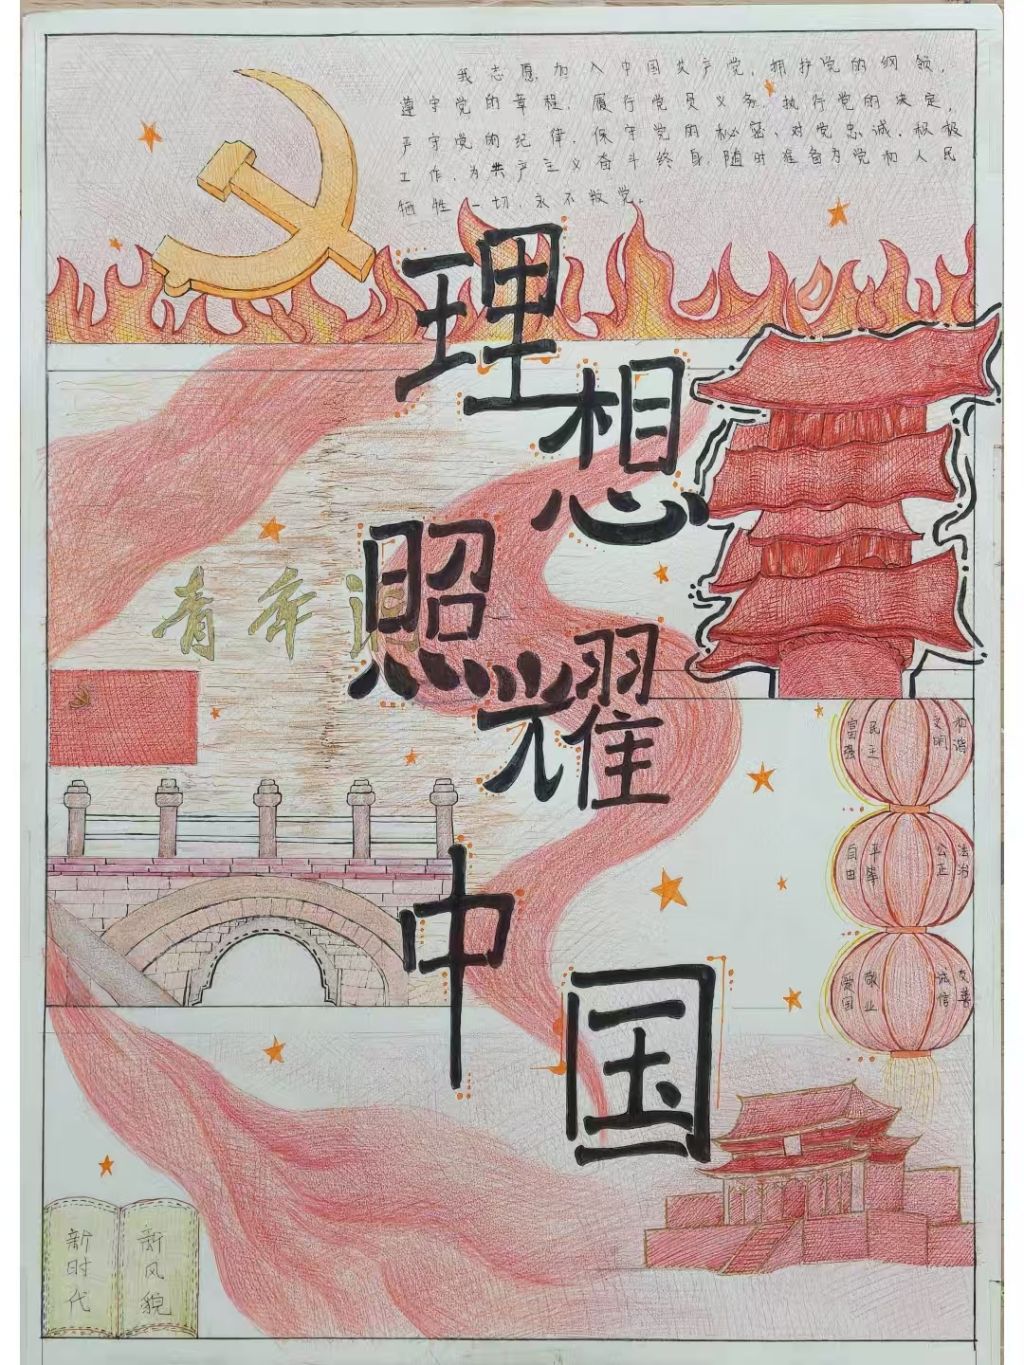 我志愿加入中国共产党，拥护党的纲领，
遵守党的章程，履行党员义务，执行党的决定，
严守党的纪律，保守党的秘密，对党忠诚，积极
工作，为共产主义奋斗终身，随时准备为党和人民
牺牲一切，永不叛党。
理想
照耀
中国
青年
富强
民主
文明
和谐
自由
平等
公正
法治
爱国
敬业
诚信
友善
新时代
新风貌